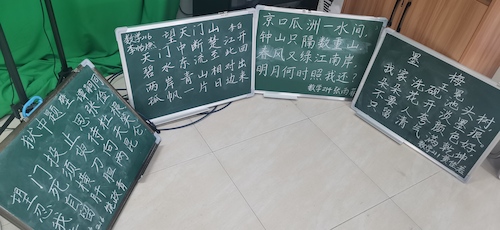 狱中题壁
望门投止思张俭
忍死须臾待杜根
我自横刀向天笑
望天门山
天门中断楚江开
碧水东流至此回
两岸青山相对出
孤帆一片日边来
京口瓜洲一水间,
钟山只隔数重山。
春风又绿江南岸
明月何时照我还?
墨梅
我家洗砚池头树
朵朵花开淡墨痕
不要人夸颜色好
只留清气满乾坤